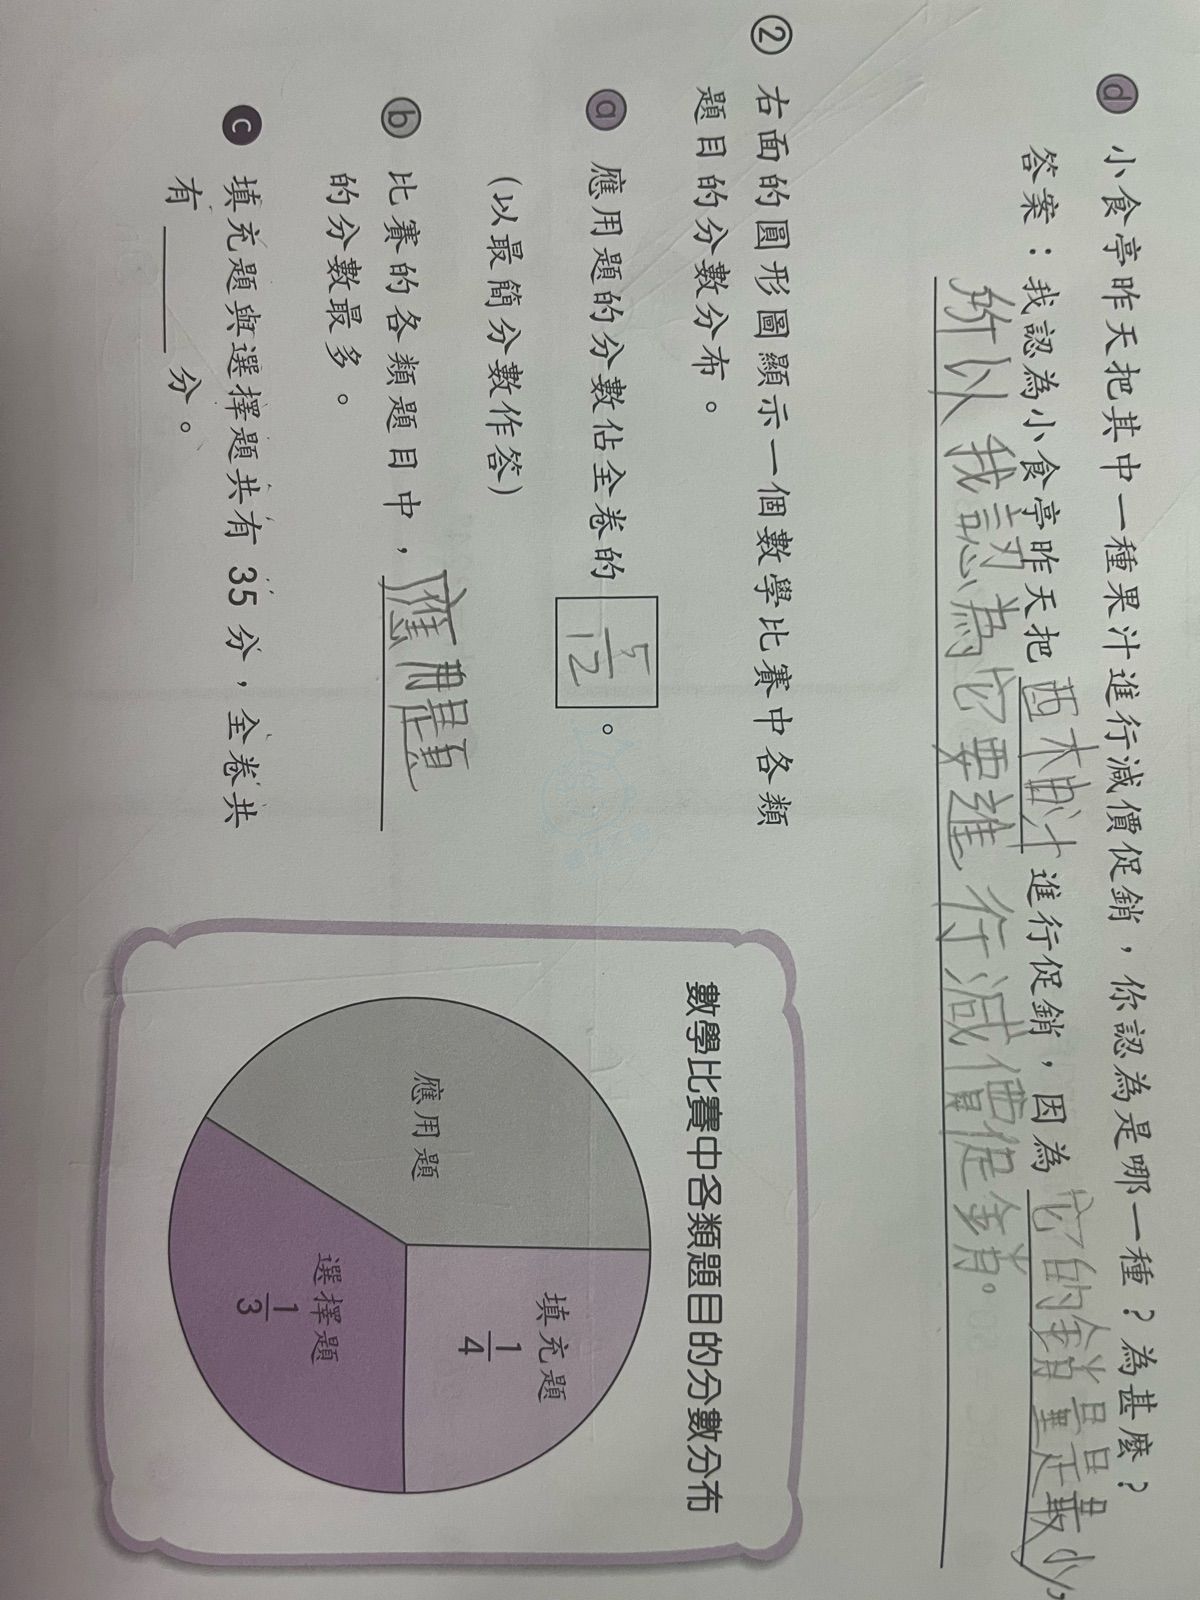 d 小食亭昨天把其中一種果汁進行減價促銷，你認為是哪一種？為甚麼？
答案：我認為小食亭昨天把西木曲汁進行促銷，因為它的銷量是最少，
所以我認為它要進行減價促銷。
② 右面的圓形圖顯示一個數學比賽中各類
題目的分數分布。
a 應用題的分數佔全卷的 5/12 。
(以最簡分數作答)
b 比賽的各類題目中，應用題
的分數最多。
c 填充題與選擇題共有 35 分，全卷共
有 ______ 分。
數學比賽中各類題目的分數分布
應用題
填充題
1/4
選擇題
1/3